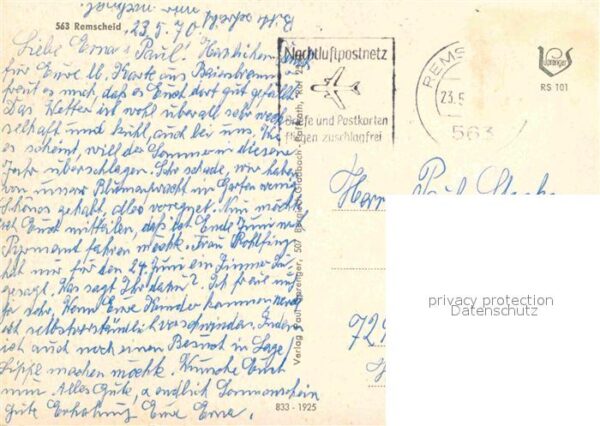 563 Remscheid, 23.5.70.
Liebe Erna + Paul! Herzlichen Dank
für Eure lb. Karte aus
freut es mich, daß es Euch dort gut gefällt.
Das Wetter ist wohl überall sehr wech-
selhaft und kühl, auch bei uns. Wie
es scheint, will der Sommer in diesem
Jahr überschlagen. Sehr schade, wir haben
von unserer Blütenpracht im Garten wenig
Schönes gehabt, alles verregnet. Nun möchte
ich Euch mitteilen, daß ich Ende Juni nach
Pyrmont fahren möchte. Frau
hat mir für den 24. Juni ein Zimmer zu-
gesagt. Was sagt Ihr dazu? Ich freue mich
so sehr. Wenn Eure Kinder kommen werde
ich selbstverständlich verschwinden. Indem
ich auch noch einen Besuch in Lage/
Lippe machen möchte. Wünsche Euch
nun Alles Gute, u. endlich Sonnenschein
gute Erholung Eure Erna.
Nachluftpostnetz
Briefe und Postkarten
fliegen zuschlagfrei
REMS
23.5
563
Sprenger
RS 101
Verlag Paul Sprenger, 507 Bergisch Gladbach - Paffrath, Ruf 2
833 - 1925
Herrn Paul
729
privacy protection
Datenschutz